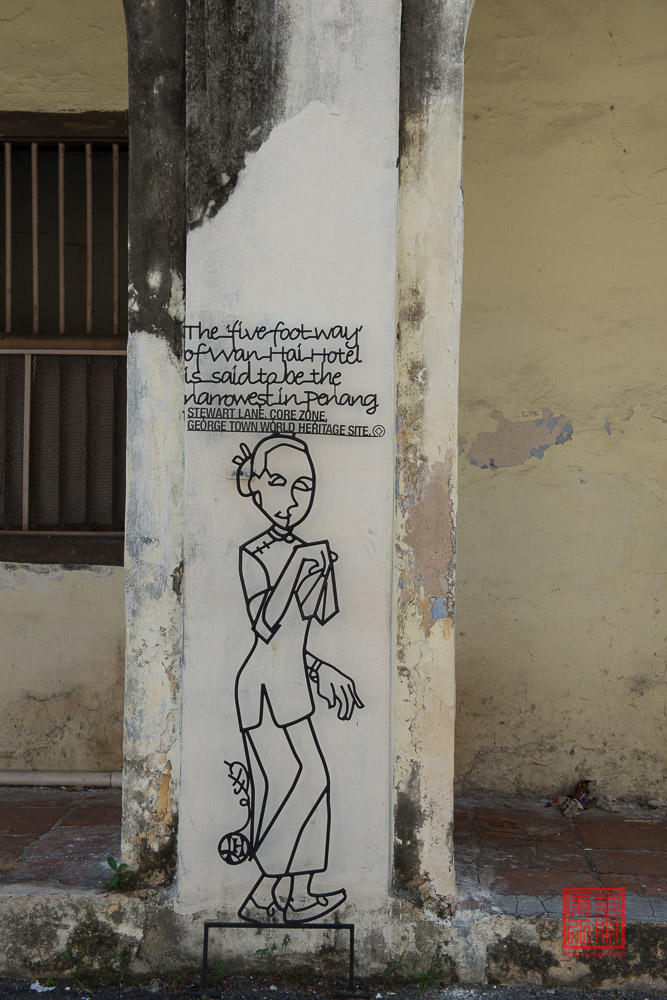 The 'five foot way'
of Wan Hai Hotel
is said to be the
narrowest in Penang
STEWART LANE, CORE ZONE,
GEORGE TOWN WORLD HERITAGE SITE.